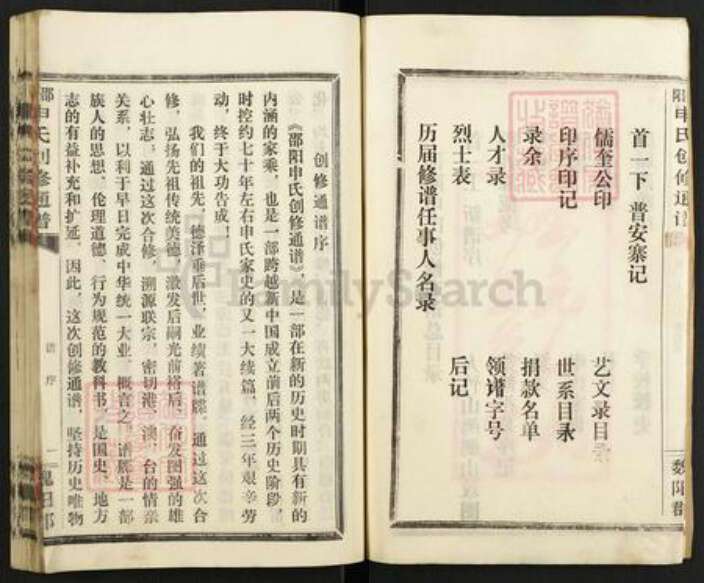 首一下 普安寨记
儒奎公印
艺文录目录
印序印记
世系目录
录余
捐款名单
人才录
领谱字号
烈士表
后记
历届修谱任事人名录
阳申氏创修通谱
魏阳郡
创修通谱序
《邵阳申氏创修通谱》，是一部在新的历史时期具有新的
内涵的家乘，也是一部跨越新中国成立前后两个历史阶段，
时控约七十年左右申氏家史的又一大续篇，经三年艰辛劳
动，终于大功告成。
我们的祖先，德泽垂后世，业绩著谱牒，通过这次合
修，弘扬先祖传统美德，激发后嗣光前裕后，奋发图强的雄
心壮志。通过这次合修，溯源联宗，密切港、澳、台的情亲
关系，以利于早日完成中华统一大业。概言之，谱牒是一部
族人的思想、伦理道德、行为规范的教科书，是国史、地方
志的有益补充和扩延。因此，这次创修通谱，坚持历史唯物
邵申氏创修通谱
谱序
FamilySearch